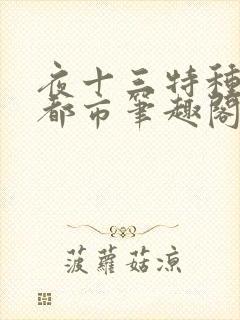 夜十三特種
都市筆趣閣
菠蘿菇涼